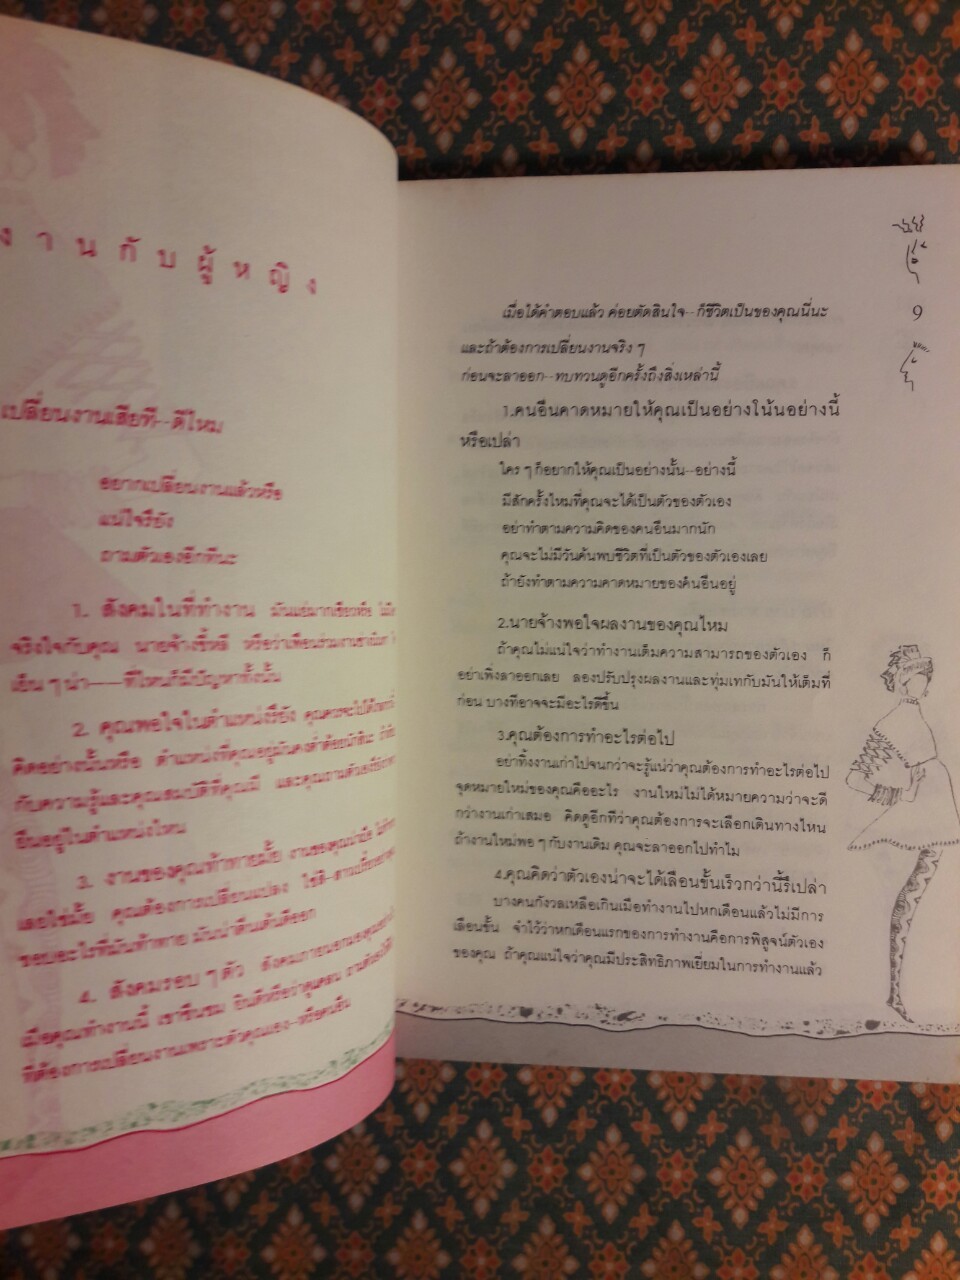 งานกับผู้หญิง
เปลี่ยนงานเสียที--ดีไหม
อยากเปลี่ยนงานแล้วหรือ
แน่ใจรึยัง
ถามตัวเองอีกทีนะ
1. สังคมในที่ทำงาน มันแย่มากเชียวหรือ
จริงใจกับคุณ นายจ้างขี้หลี หรือว่าเพื่อนร่วมงาน
เย็น ๆ น่า——ที่ไหนก็มีปัญหาทั้งนั้น
2. คุณพอใจในตำแหน่งรึยัง
คิดอย่างนั้นหรือ ตำแหน่งที่คุณอยู่มัน
กับความรู้และคุณสมบัติที่คุณมี
อื่นอยู่ในตำแหน่งไหน
3. งานของคุณท้าทายมั้ย
เลยใช่มั้ย คุณต้องการเปลี่ยนแปลง
ชอบอะไรที่มันท้าทาย มันน่าตื่นเต้นดีออก
4. สังคมรอบ ๆ ตัว
เมื่อคุณทำงานนี้ เขาชื่นชม ยินดีหรือว่าดูแคลน
ที่ต้องการเปลี่ยนงานเพราะตัวคุณเอง-หรือคนอื่น
9
เมื่อได้คำตอบแล้ว ค่อยตัดสินใจ--ก็ชีวิตเป็นของคุณนี่นะ
และถ้าต้องการเปลี่ยนงานจริง ๆ
ก่อนจะลาออก--ทบทวนดูอีกครั้งถึงสิ่งเหล่านี้
1.คนอื่นคาดหมายให้คุณเป็นอย่างโน้นอย่างนี้
หรือเปล่า
ใคร ๆ ก็อยากให้คุณเป็นอย่างนั้น--อย่างนี้
มีสักครั้งไหมที่คุณจะได้เป็นตัวของตัวเอง
อย่าทำตามความคิดของคนอื่นมากนัก
คุณจะไม่มีวันค้นพบชีวิตที่เป็นตัวของตัวเองเลย
ถ้ายังทำตามความคาดหมายของคนอื่นอยู่
2.นายจ้างพอใจผลงานของคุณไหม
ถ้าคุณไม่แน่ใจว่าทำงานเต็มความสามารถของตัวเอง ก็
อย่าเพิ่งลาออกเลย ลองปรับปรุงผลงานและทุ่มเทกับมันให้เต็มที่
ก่อน บางทีอาจจะมีอะไรดีขึ้น
3.คุณต้องการทำอะไรต่อไป
อย่าทิ้งงานเก่าไปจนกว่าจะรู้แน่ว่าคุณต้องการทำอะไรต่อไป
จุดหมายใหม่ของคุณคืออะไร งานใหม่ไม่ได้หมายความว่าจะดี
กว่างานเก่าเสมอ คิดดูอีกทีว่าคุณต้องการจะเลือกเดินทางไหน
ถ้างานใหม่พอ ๆ กับงานเดิม คุณจะลาออกไปทำไม
4.คุณคิดว่าตัวเองน่าจะได้เลื่อนขั้นเร็วกว่านี้รึเปล่า
บางคนกังวลเหลือเกินเมื่อทำงานไปหกเดือนแล้วไม่มีการ
เลื่อนขั้น จำไว้ว่าหกเดือนแรกของการทำงานคือการพิสูจน์ตัวเอง
ของคุณ ถ้าคุณแน่ใจว่าคุณมีประสิทธิภาพเยี่ยมในการทำงานแล้ว